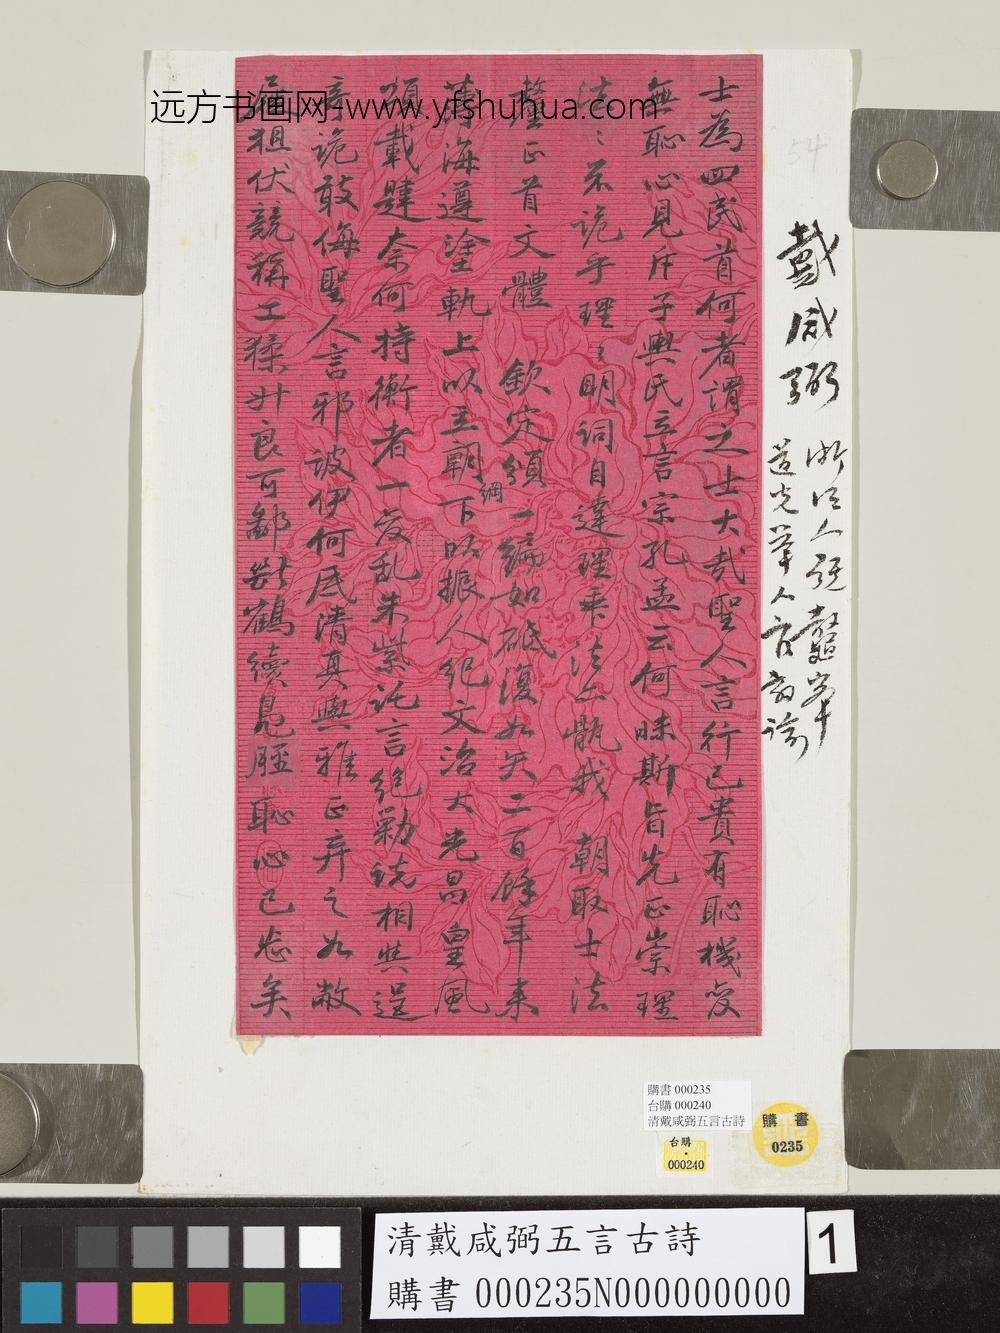 远方书画网-www.yfshuhua.com
士為四民首何者謂之士大哉聖人言行己貴有恥機變
無恥心見斥子輿氏立言宗孔孟云何昧斯旨先正崇理
法法不詭乎理理明詞自達理乖法亦骫我 朝取士法
釐正首文體 欽定頒一編如砥復如矢二百餘年來
薄海遵塗軌上以立朝綱下以振人紀文治大光昌皇風
頌載肆奈何持衡者一變亂朱紫託言絕勦說相與逞
詭敢侮聖人言邪詖伊何底清真與雅正弃之如敝
狙伏競稱工猱升良可鄙
鶴續鳧脛恥心已忘矣
戴咸弼
浙江人號鼇峯
道光舉人官
54
購書 000235
台購 000240
清戴咸弼五言古詩
台購
000240
購 書
0235
清戴咸弼五言古詩
購書 000235N000000000
1